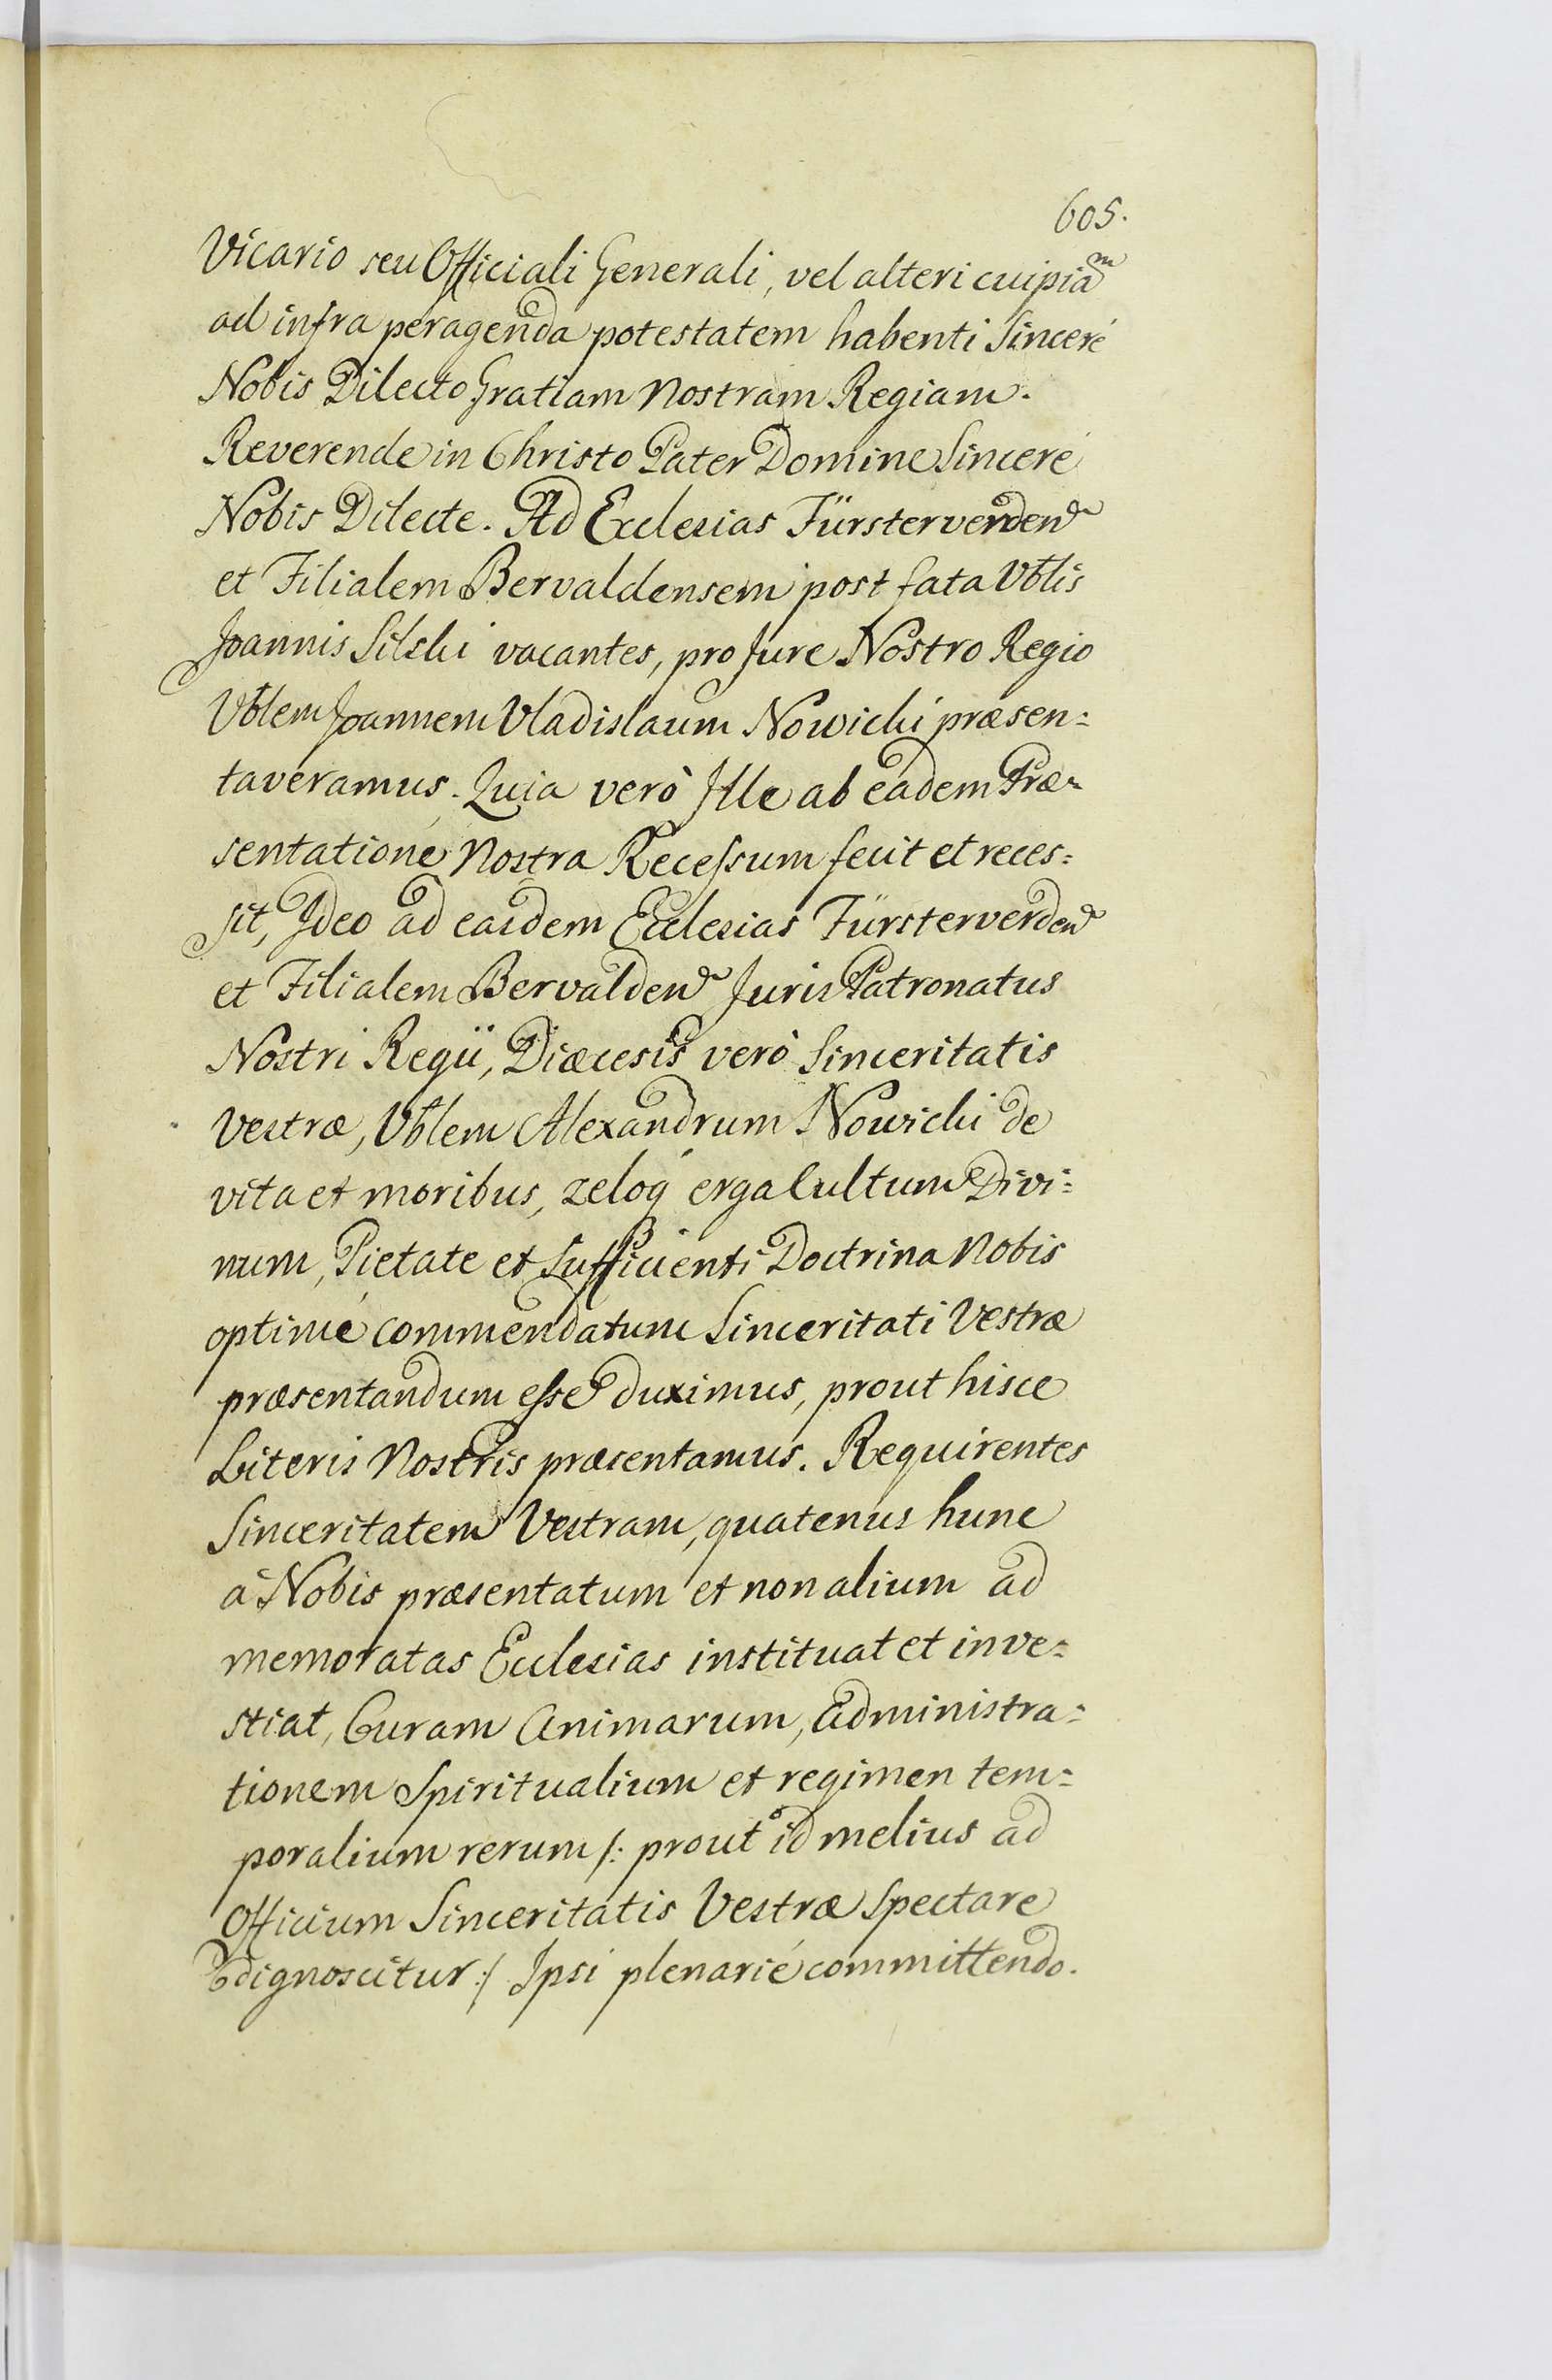 605.
Vicario seu Officiali Generali, vel alteri cuipiam
ad infra peragenda potestatem habenti Sinceré
Nobis Dilecto Gratiam Nostram Regiam.
Reverende in Christo Pater Domine Sinceré
Nobis Dilecte. Ad Ecclesias Fürsterverden
et Filialem Bervaldensem post fata Vblis
Joannis Silski vacantes, pro Jure Nostro Regio
Vblem Joannem Vladislaum Nowicki præsen=
taveramus. Quia verò Ille ab eadem Præ=
sentatione Nostra Recessum fecit et reces=
sit, Ideo ad easdem Ecclesias Fürsterverden
et Filialem Bervalden Juris Patronatus
Nostri Regii, Diæcesis verò Sinceritatis
Vestræ, Vblem Alexandrum Nowicki de
vita et moribus, zeloq́ erga Cultum Divi=
num, Pietate et Sufficienti Doctrina Nobis
optimé commendatum Sinceritati Vestræ
præsentandum esse duximus, prout hisce
Literis Nostris præsentamus. Requirentes
Sinceritatem Vestram, quatenus hunc
à Nobis præsentatum et non alium ad
memoratas Ecclesias instituat et inve=
stiat, Curam Animarum, administra=
tionem Spiritualium et regimen tem=
poralium rerum /: prout id melius ad
Officium Sinceritatis Vestræ Spectare
dignoscitur :/ Ipsi plenarié committendo.